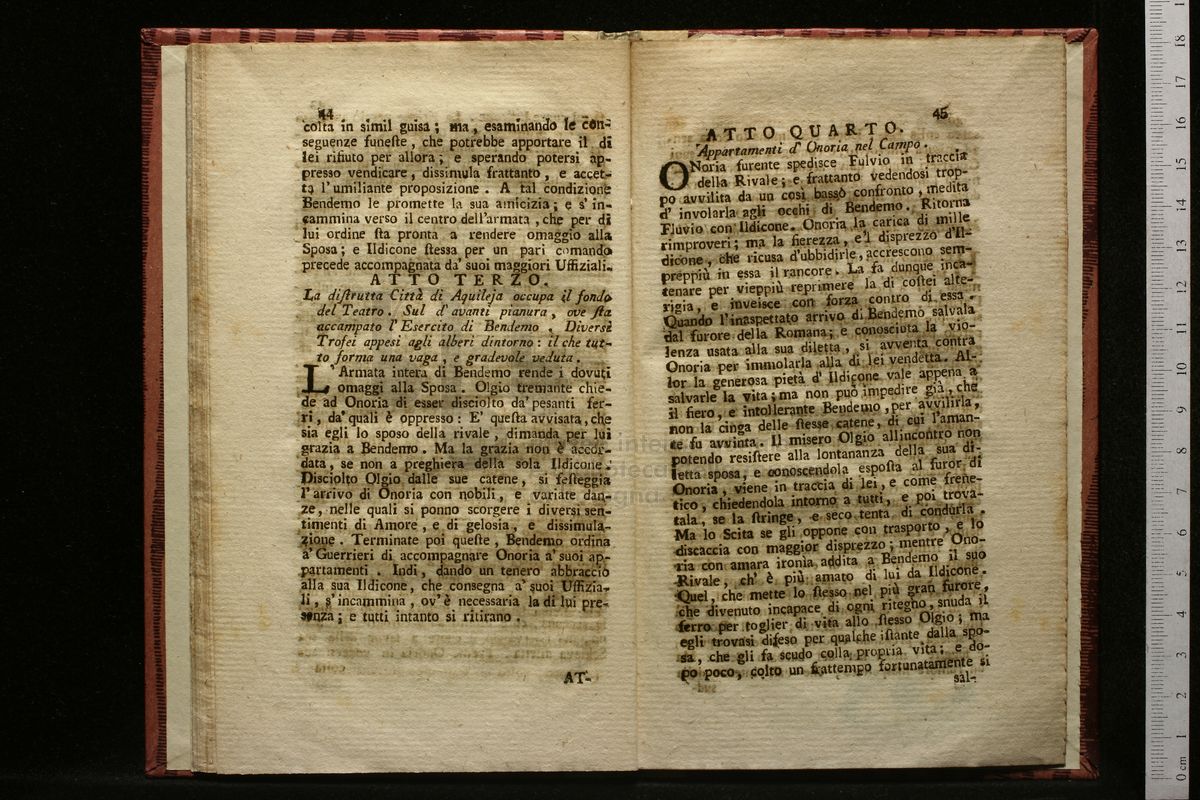 44
colta in simil guisa; ma, esaminando le con-
seguenze funeste, che potrebbe apportare il di
lei rifiuto per allora; e sperando potersi ap-
presso vendicare, dissimula frattanto, e accet-
ta l'umiliante proposizione. A tal condizione
Bendemo le promette la sua amicizia; e s'in-
cammina verso il centro dell'armata, che per di
lui ordine sta pronta a rendere omaggio alla
Sposa; e Ildicone stessa per un pari comando
precede accompagnata da' suoi maggiori Uffiziali.
ATTO TERZO.
La distrutta Città di Aquileja occupa il fondo
del Teatro. Sul d'avanti pianura, ove sta
accampato l'Esercito di Bendemo. Diversi
Trofei appesi agli alberi dintorno: il che tut-
to forma una vaga, e gradevole veduta.
L'Armata intera di Bendemo rende i dovuti
omaggi alla Sposa. Olgio tremante chie-
de ad Onoria di esser disciolto da' pesanti fer-
ri, da' quali è oppresso: E' questa avvisata, che
sia egli lo sposo della rivale, dimanda per lui
grazia a Bendemo. Ma la grazia non è accor-
data, se non a preghiera della sola Ildicone.
Disciolto Olgio dalle sue catene, si festeggia
l'arrivo di Onoria con nobili, e variate dan-
ze, nelle quali si ponno scorgere i diversi sen-
timenti di Amore, e di gelosia, e dissimula-
zione. Terminate poi queste, Bendemo ordina
a' Guerrieri di accompagnare Onoria a' suoi ap-
partamenti. Indi, dando un tenero abbraccio
alla sua Ildicone, che consegna a' suoi Uffizia-
li, s'incammina, ov'è necessaria la di lui pre-
senza; e tutti intanto si ritirano.
AT-
45
ATTO QUARTO.
Appartamenti d'Onoria nel Campo.
ONoria furente spedisce Fulvio in traccia
della Rivale; e frattanto vedendosi trop-
po avvilita da un così basso confronto, medita
d'involarla agli occhi di Bendemo. Ritorna
Fluvio con Ildicone. Onoria la carica di mille
rimproveri; ma la fierezza, e'l disprezzo d'Il-
dicone, che ricusa d'ubbidirle, accrescono sem-
preppiù in essa il rancore. La fa dunque inca-
tenare per vieppiù reprimere la di costei alte-
rigia, e inveisce con forza contro di essa.
Quando l'inaspettato arrivo di Bendemo salvala
dal furore della Romana; e conosciuta la vio-
lenza usata alla sua diletta, si avventa contra
Onoria per immolarla alla di lei vendetta. Al-
lor la generosa pietà d'Ildicone vale appena a
salvarle la vita; ma non può impedire già, che
il fiero, e intollerante Bendemo, per avvilirla,
non la cinga delle stesse catene, di cui l'aman-
te fu avvinta. Il misero Olgio allincontro non
potendo resistere alla lontananza della sua di-
letta sposa, e conoscendola esposta al furor di
Onoria, viene in traccia di lei, e come frene-
tico, chiedendola intorno a tutti, e poi trova-
tala, se la stringe, e seco tenta di condurla.
Ma lo Scita se gli oppone con trasporto, e lo
discaccia con maggior disprezzo; mentre Ono-
ria con amara ironia addita a Bendemo il suo
Rivale, ch'è più amato di lui da Ildicone.
Quel, che mette lo stesso nel più gran furore,
che divenuto incapace di ogni ritegno, snuda il
ferro per toglier di vita allo stesso Olgio; ma
egli trovasi difeso per qualche istante dalla spo-
sa, che gli fa scudo colla propria vita; e do-
po poco, colto un frattempo fortunatamente si
sal-